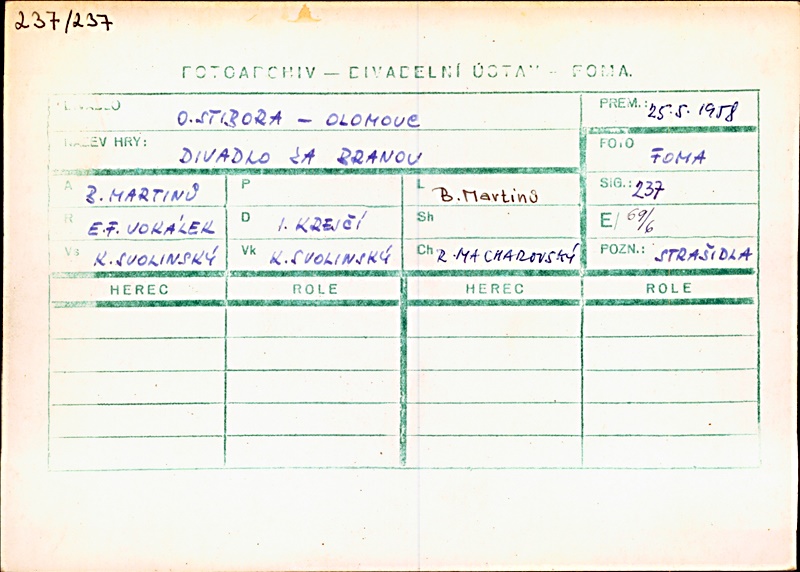 237/237
FOTOARCHIV — DIVADELNÍ ÚSTAV — FOMA.
DIVADLO O. STIBORA – OLOMOUC PREM.: 25.5. 1958
NÁZEV HRY: DIVADLO ZA BRANOU FOTO FOMA
A B. MARTINŮ P L B. Martinů SIG.: 237
R E.F. VOKÁLEK D I. KREJČÍ Sh E/ 69/6
Vs K. SVOLINSKÝ Vk K. SVOLINSKÝ Ch R. MACHAROVSKÝ POZN.: STRAŠIDLA
HEREC ROLE HEREC ROLE